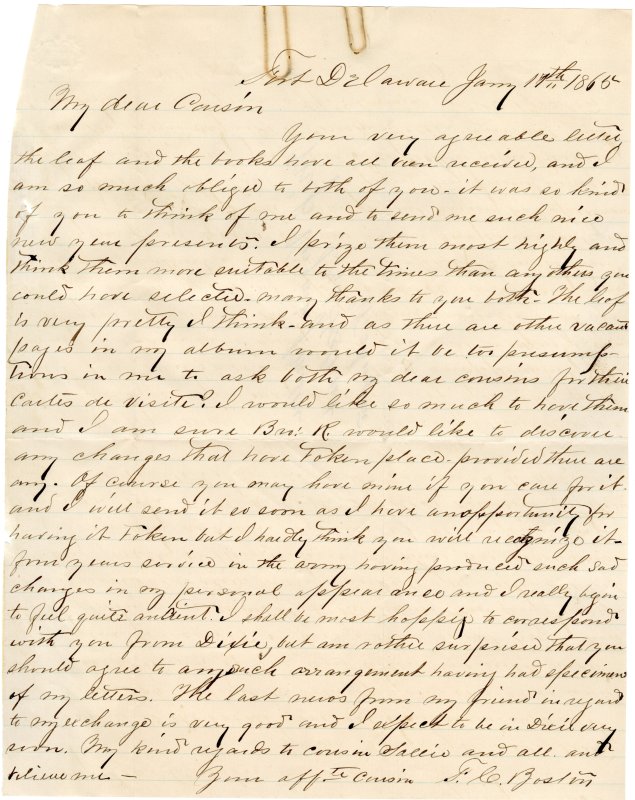 Fort Delaware Jany 17th 1865
My dear Cousin
Your very agreeable letter
the leaf and the books have all been received, and I
am so much obliged to both of you - it was so kind
of you to think of me and to send me such nice
new year presents. I prize them most highly and
think them more suitable to the times than any others you
could have selected - many thanks to you both - The leaf
is very pretty I think - and as there are other vacant
pages in my album would it be too presump-
tious in me to ask both my dear cousins for their
cartes de visite? I would like so much to have them
and I am sure Bro: R. would like to discover
any changes that have taken place - provided there are
any. Of course you may have mine if you care for it -
and I will send it so soon as I have an opportunity for
having it taken but I hardly think you will recognize it -
four years service in the army having produced such sad
changes in my personal appearance and I really begin
to feel quite ancient. I shall be most happy to correspond
with you from Dixie, but am rather surprised that you
should agree to any such arrangement having had specimens
of my letters. The last news from my friend in regard
to my exchange is very good and I expect to be in Dixie very
soon. My kind regards to cousin Sallie and all. and
believe me - Your affte cousin F. C. Boston